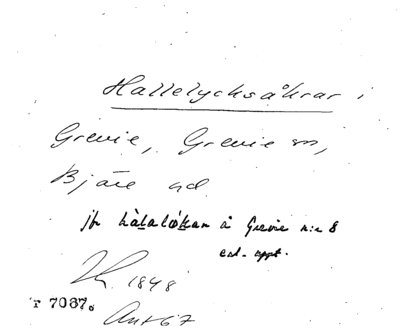 Hallelycksåkrar i
Grevie, Grevie sn,
Bjäre hd.
jfr hàlalỏkan å Grevie n:r 8
enl. uppt.
1848
T 7087.
Ant 67